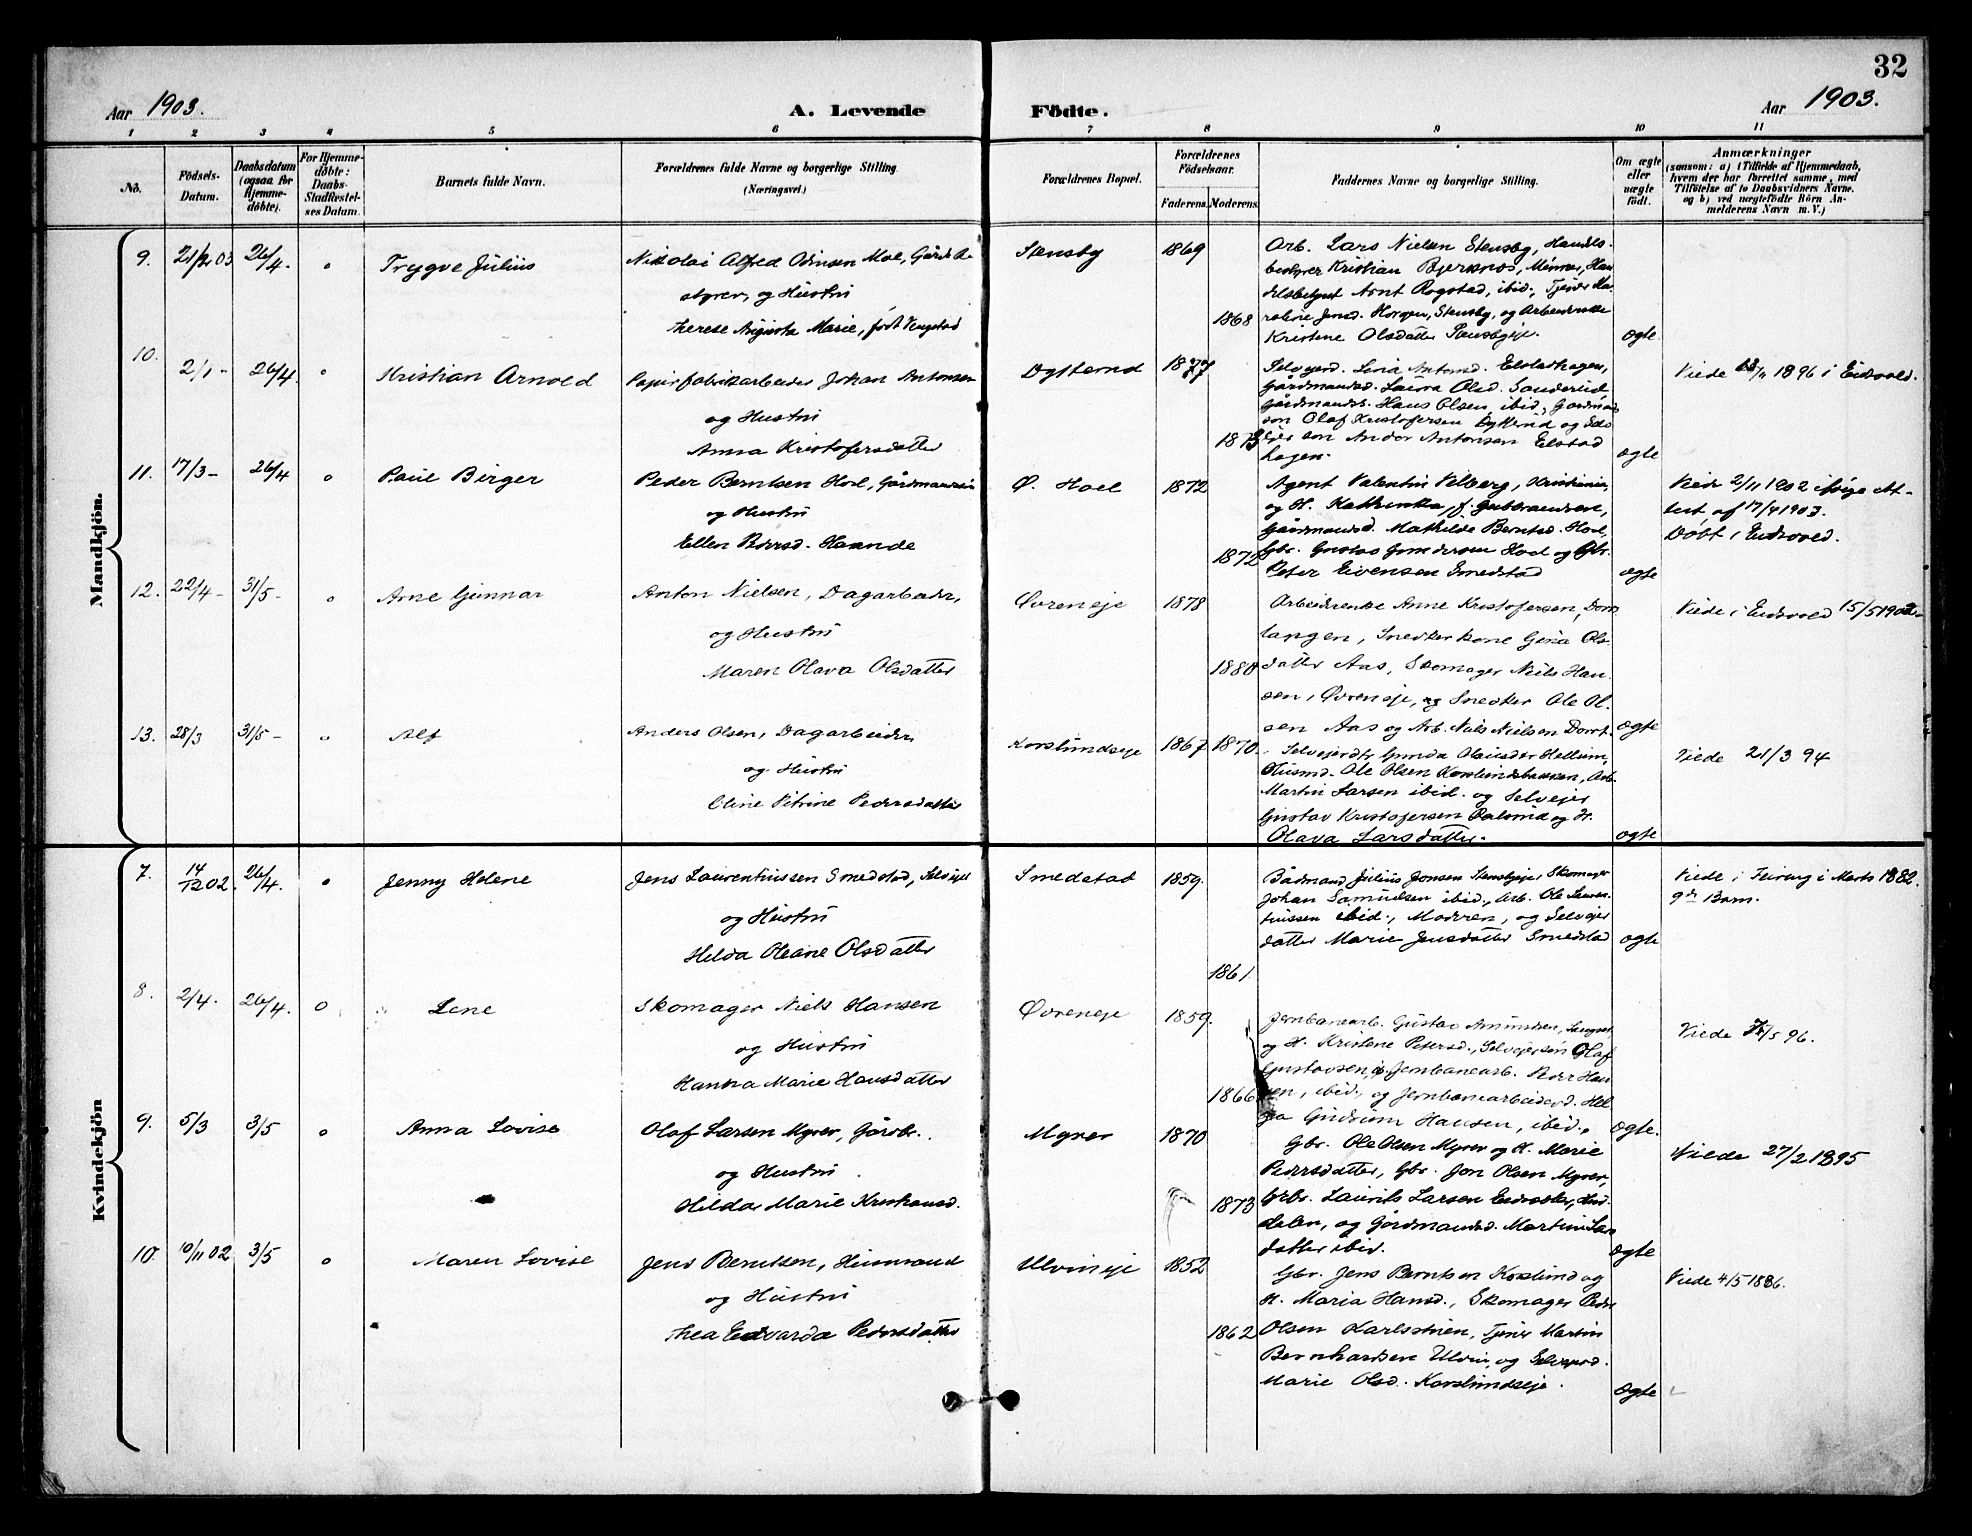 32
Aar 1903.
A. Levende Födte.
Aar 1903.
1 2 3 4 5 6 7 8 9 10 11
No.
Födsels-
Datum.
Daabsdatum
(ogsaa for
Hjemme-
döbte).
For Hjemme-
döbte:
Daabs-
Stadfæstel-
ses Datum.
Barnets fulde Navn.
Forældrenes fulde Navne og borgerlige Stilling
(Næringsvei.)
Forældrenes Bopæl.
Forældrenes
Födselsaar.
Faderens. Moderens.
Faddernes Navne og borgerlige Stilling.
Om ægte
eller
uægte
födt.
Anmærkninger
(saasom: a) i Tilfælde af Hjemmedaab,
hvem der har forrettet samme, med
Tilföielse af to Daabsvidners Navne.
og b) ved uægtefödte Börn An-
melderens Navn m. V.)
Mandkjön.
9. 21/2 03 26/4. Trygve Julius
Nikolai Alfred Odinsen Moe, Gårdsbe
styrer, og Hustru
Therese Augusta Marie, født Vengstad
Stensby 1869 1868
Arb. Lars Nielsen Stensby, Handels-
bestyrer Kristian Bjerknes, Minne, Han
delsbetjent Arnt Rogstad, ibid., Tjener Ka-
roline Jensd. Horgen, Stensby, og Arbeiderske
Kristine Olsdatter Stensbyeje.
ægte
10. 2/1 - 26/4. Kristian Arnold
Papirfabrikarbeider Johan Antonsen
og Hustru
Anna Kristofersdatter
Dysterud 1877 1873
Selvejerd. Lina Antonsd. Elstadhagen,
Gårdmandsd. Laura Olsd. Sanderud
Gårdmandss. Hans Olsen, ibid., Gårdmands
søn Olaf Kristofersen Dysterud og Selv
ejersøn Andor Antonsen Elstad
hagen.
ægte
Viede /11 1896 i Eidsvold.
11. 17/3 - 26/4 Paul Birger
Peder Berntsen Hoel, Gårdmandssøn
og Hustru
Ellen Pedersd. Haande
Ø. Hoel 1872 1872
Agent Valentin Vilberg, Kristiania,
og H. Kathrinka, f. Gulbrandsen,
Gårdmandsd. Mathilde Berntsd. Hoel,
Gbr. Gustav Gundersen Hoel og Gbr.
Peter Evensen Smedstad
ægte
Viede 2/11 1902 ifølge At-
test af 17/4 1903.
Døbt i Eidsvold.
12. 22/4 - 31/5 - Arne Gunnar
Anton Nielsen, Dagarbeider,
og Hustru
Maren Olava Olsdatter
Øvreneje 1878 1880
Arbeiderske Anne Kristofersen, Dorr
tangen, Snedkerkone Gina Ols-
datter Aas, Skomager Niels Han-
sen, Øvreneje, og Snedker Ole Ol-
sen Aas og Arb. Nils Nielsen Dorrt.
ægte
Viede i Eidsvold 15/5 1902
13. 28/3 31/5 - Alf
Anders Olsen, Dagarbeider,
og Hustru
Oline Petrine Pedersdatter
Korslundseje 1867 1870.
Selvejerdtr. Gunda Olausdtr Hellum,
Husmd. Ole Olsen Korslundsbakken, Arb.
Martin Larsen ibid. og Selvejer
Gustav Kristofersen Palerud og H.
Olava Larsdatter.
ægte
Viede 21/3 94
Kvindekjön
7. 14/12 02. 26/4. Jenny Helene
Jens Laurenthiussen Smedstad, Selvejer
og Hustru
Helda Oleane Olsdatter
Smedstad 1859. 1861.
Bådmand Julius Jonsen Stensbyeje, Skomager
Johan Samuelsen ibid., Arb. Ole Lauren-
tiussen ibid., Moderen, og Selvejer
datter Marie Jensdatter Smedstad
ægte
Viede i Feiring i Marts 1882.
9de Barn.
8. 2/4. 26/4. Lene
Skomager Niels Hansen
og Hustru
Hanna Marie Hansdatter
Øvreneje 1859. 1866
Jernbanearb. Gustav Amundsen, Langset
og H. Kristine Petersd., Selvejersøn Olaf
Gustavsen, og Jernbanearb. Peder Han
sen, ibid., og Jernbanearbeiderd. Hel-
ga Gudrun Hansen, ibid.,
ægte.
Viede /5 96.
9. 5/3 3/5 Anna Lovise
Olaf Larsen Myrer, Gårdbr.
og Hustru
Hilda Marie Kristiansd.
Myrer 1870 1873
Gbr. Ole Olsen Myrer og H. Marie
Pedersdatter, Gbr. Jon Olsen Myrer,
Grbr. Laurits Larsen Eidvaker, Hur-
dalen, og Gårdmandsd. Martine Lars
datter ibid.
ægte
Viede 27/2 1895
10. 10/11 02 3/5 Maren Lovise
Jens Berntsen, Husmand
og Hustru
Thea Edvarda Pedersdatter
Ulvineje 1852 1862
Gbr. Jens Berntsen Korslund og
H. Maria Hansd., Skomager Peder
Olsen Karlsstuen, Tjener Martin
Bernhardsen Ulvin, og Selvejerd.
Marie Olsd. Korslundseje.
ægte
Viede 4/5 1886.